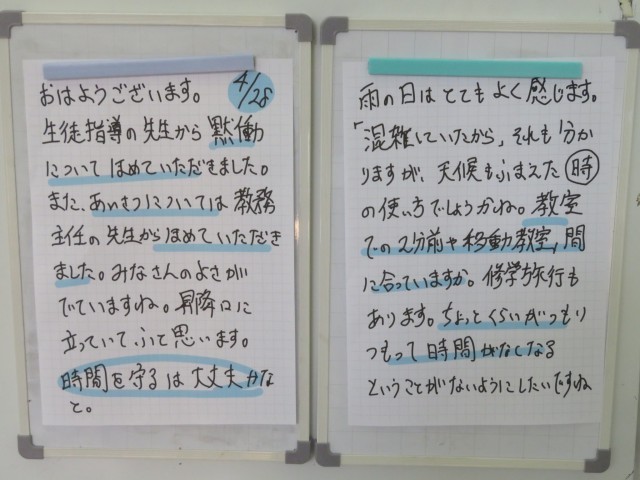 おはようございます。
4/28
生徒指導の先生から黙働
についてほめていただきました。
また、あいさつについては教務
主任の先生からほめていただき
ました。みなさんのよさが
でていますね。昇降口に
立っていてふと思います。
時間を守るは大丈夫かな
と。
雨の日はとてもよく感じます。
「混雑していたから」それも分か
りますが、天候もふまえた時
の使い方でしょうかね。教室
での2分前や移動教室、間
に合っていますか。修学旅行も
あります。ちょっとくらいがつもり
つもって時間がなくなる
ということがないようにしたいですね